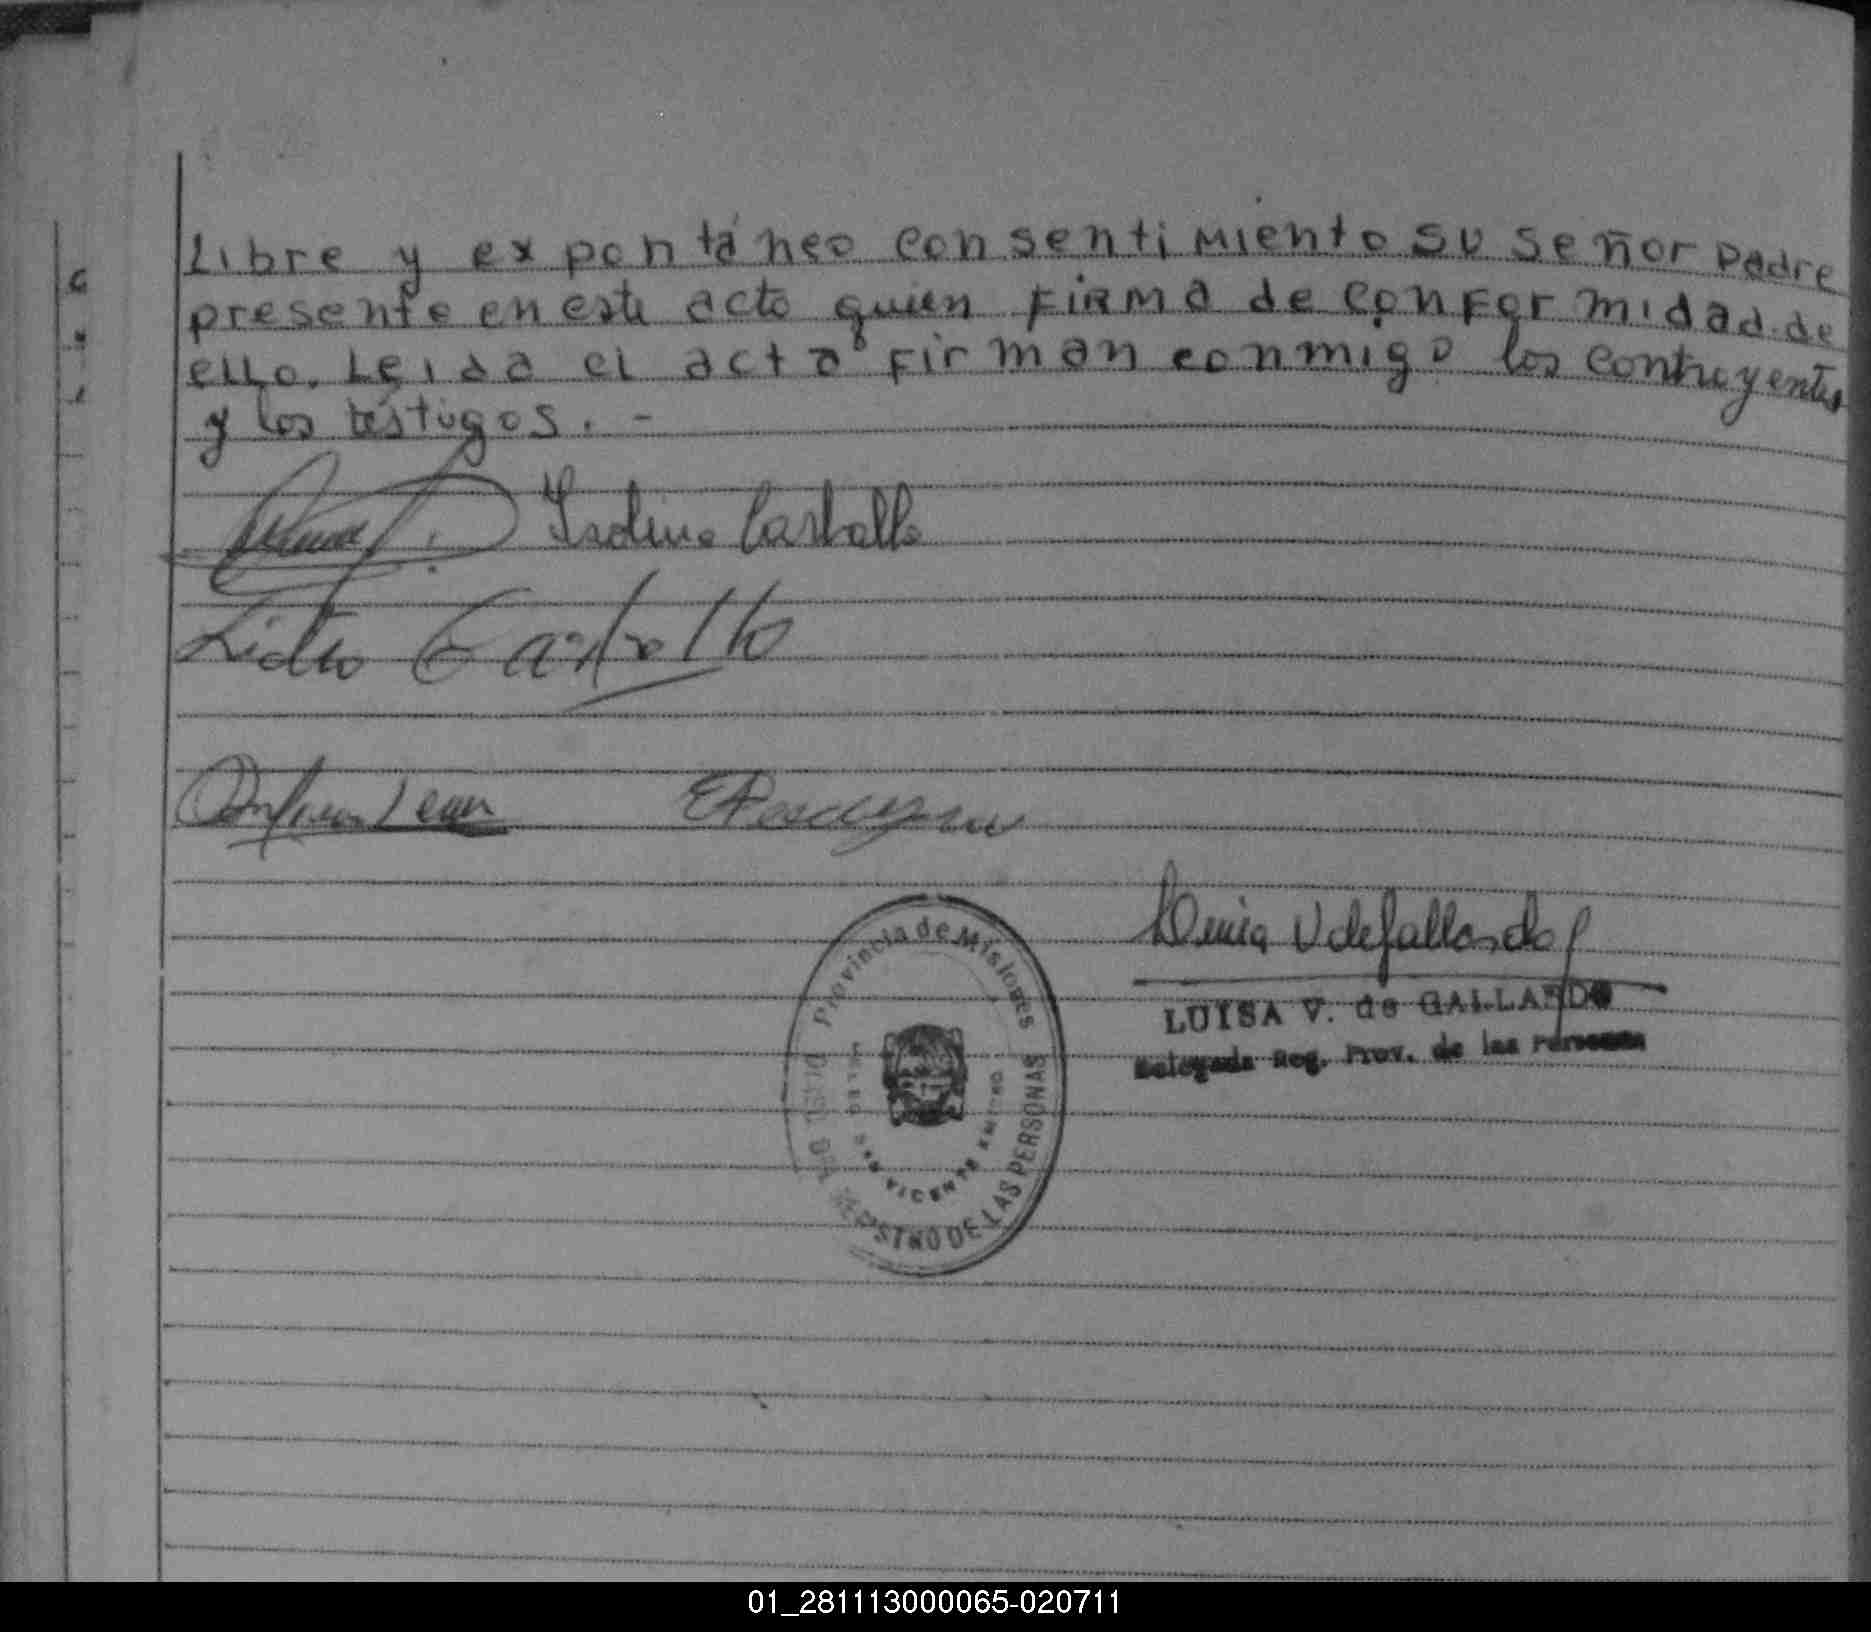 Libre y expontáneo consentimiento su señor padre
presente en este acto quien firma de conformidad de
ello. Leida el acta firman conmigo los contrayentes
y los testigos. -
Isolina Carballo
Carballo
Luisa V de Gallardo
LUISA V. de GALLARDO
Delegada Reg. Prov. de las Personas
Provincia de Misiones
REGISTRO DE LAS PERSONAS
SAN VICENTE
01_281113000065-020711